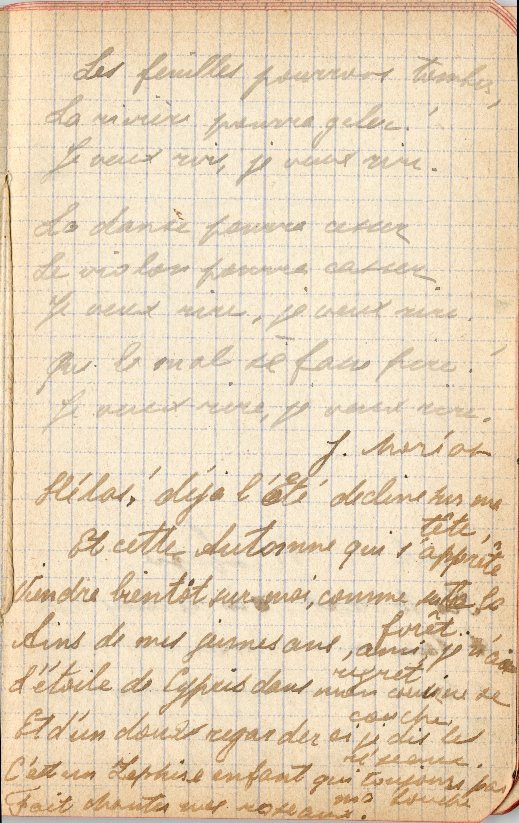 Les feuilles pourront tomber,
La rivière pourra geler!
Je veux rire, je veux rire.
La danse pourra cesser
Le violon pourra casser
Je veux rire, je veux rire.
Que le mal se fasse pire!
Je veux rire, je veux rire.
J. Moréas
Hélas! déjà l'Été décline sur ma
tête,
Et cette Automne qui s'apprête
Viendra bientôt sur moi, comme sur la
forêt.
de mes jeunes ans, amis, je n'ai
regret
L'étoile de Cypris dans mon se
couche
Et d'un doux regarder si je dis le
réseau.
C'est un Zephire enfant qui toujours par
ma bouche
Fait chanter mes roseaux.